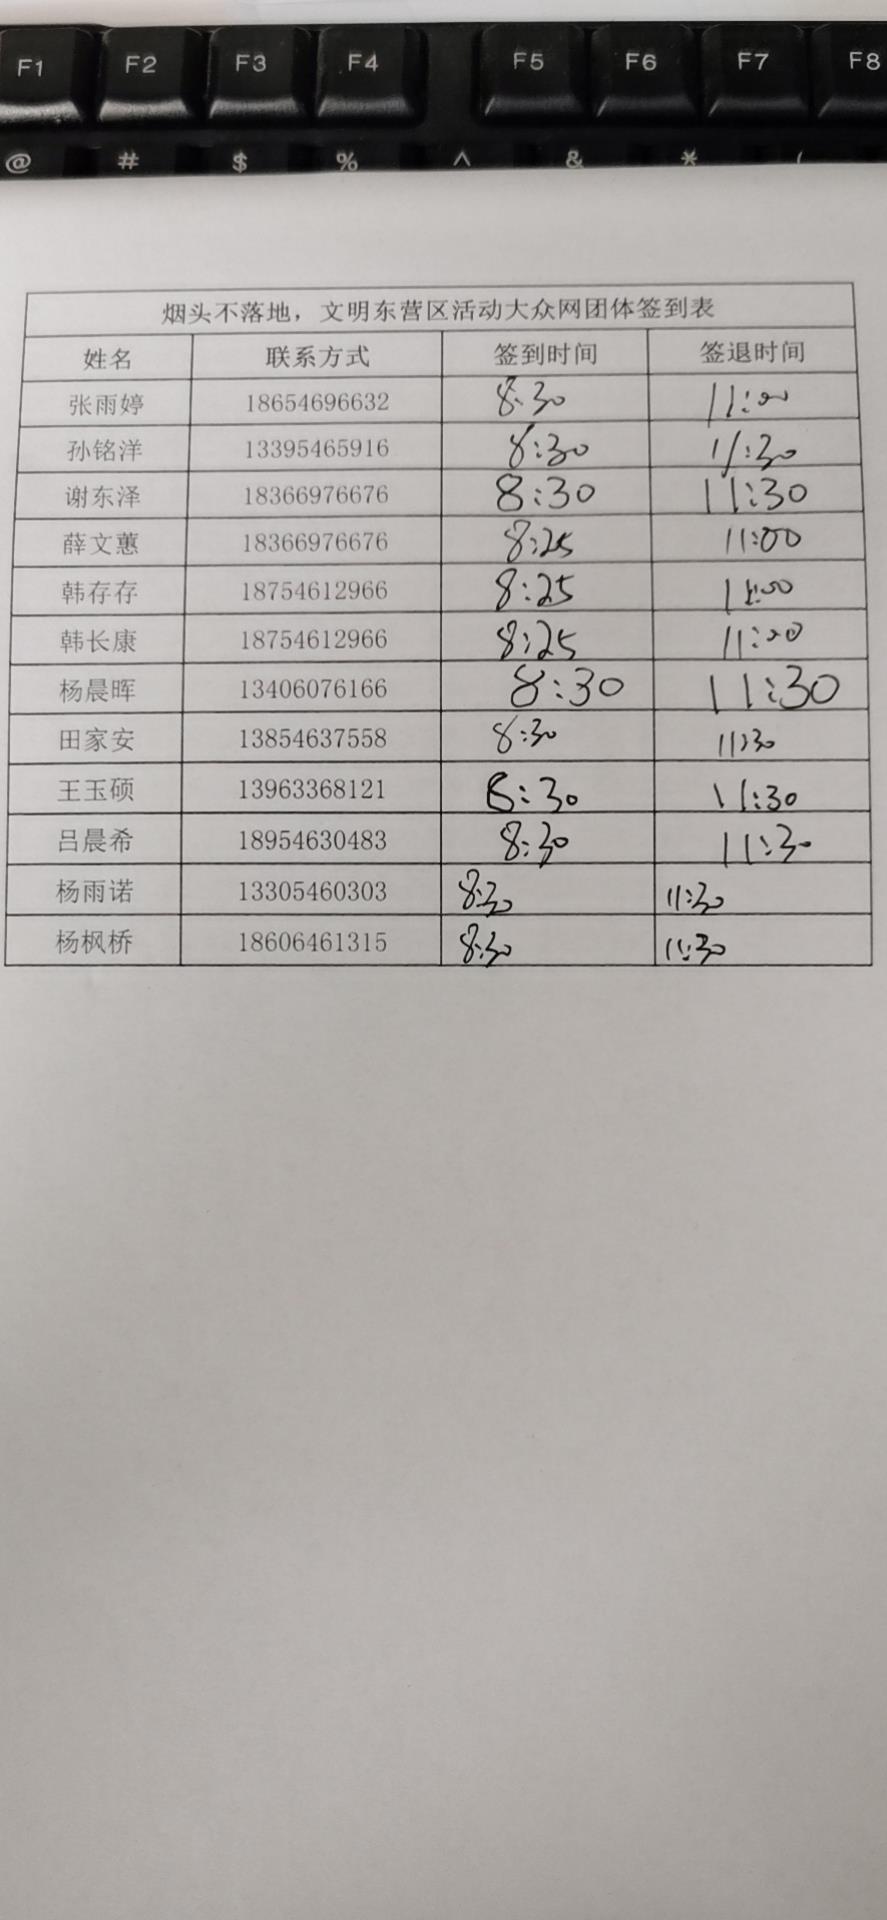 F1 F2 F3 F4 F5 F6 F7 F8
@ # $ % ^ & * (
烟头不落地，文明东营区活动大众网团体签到表
姓名 联系方式 签到时间 签退时间
张雨婷 18654696632 8:30 11:00
孙铭洋 13395465916 8:30 11:30
谢东泽 18366976676 8:30 11:30
薛文蕙 18366976676 8:25 11:00
韩存存 18754612966 8:25 11:00
韩长康 18754612966 8:25 11:00
杨晨晖 13406076166 8:30 11:30
田家安 13854637558 8:30 11:30
王玉硕 13963368121 8:30 11:30
吕晨希 18954630483 8:30 11:30
杨雨诺 13305460303 8:30 11:30
杨枫桥 18606461315 8:30 11:30